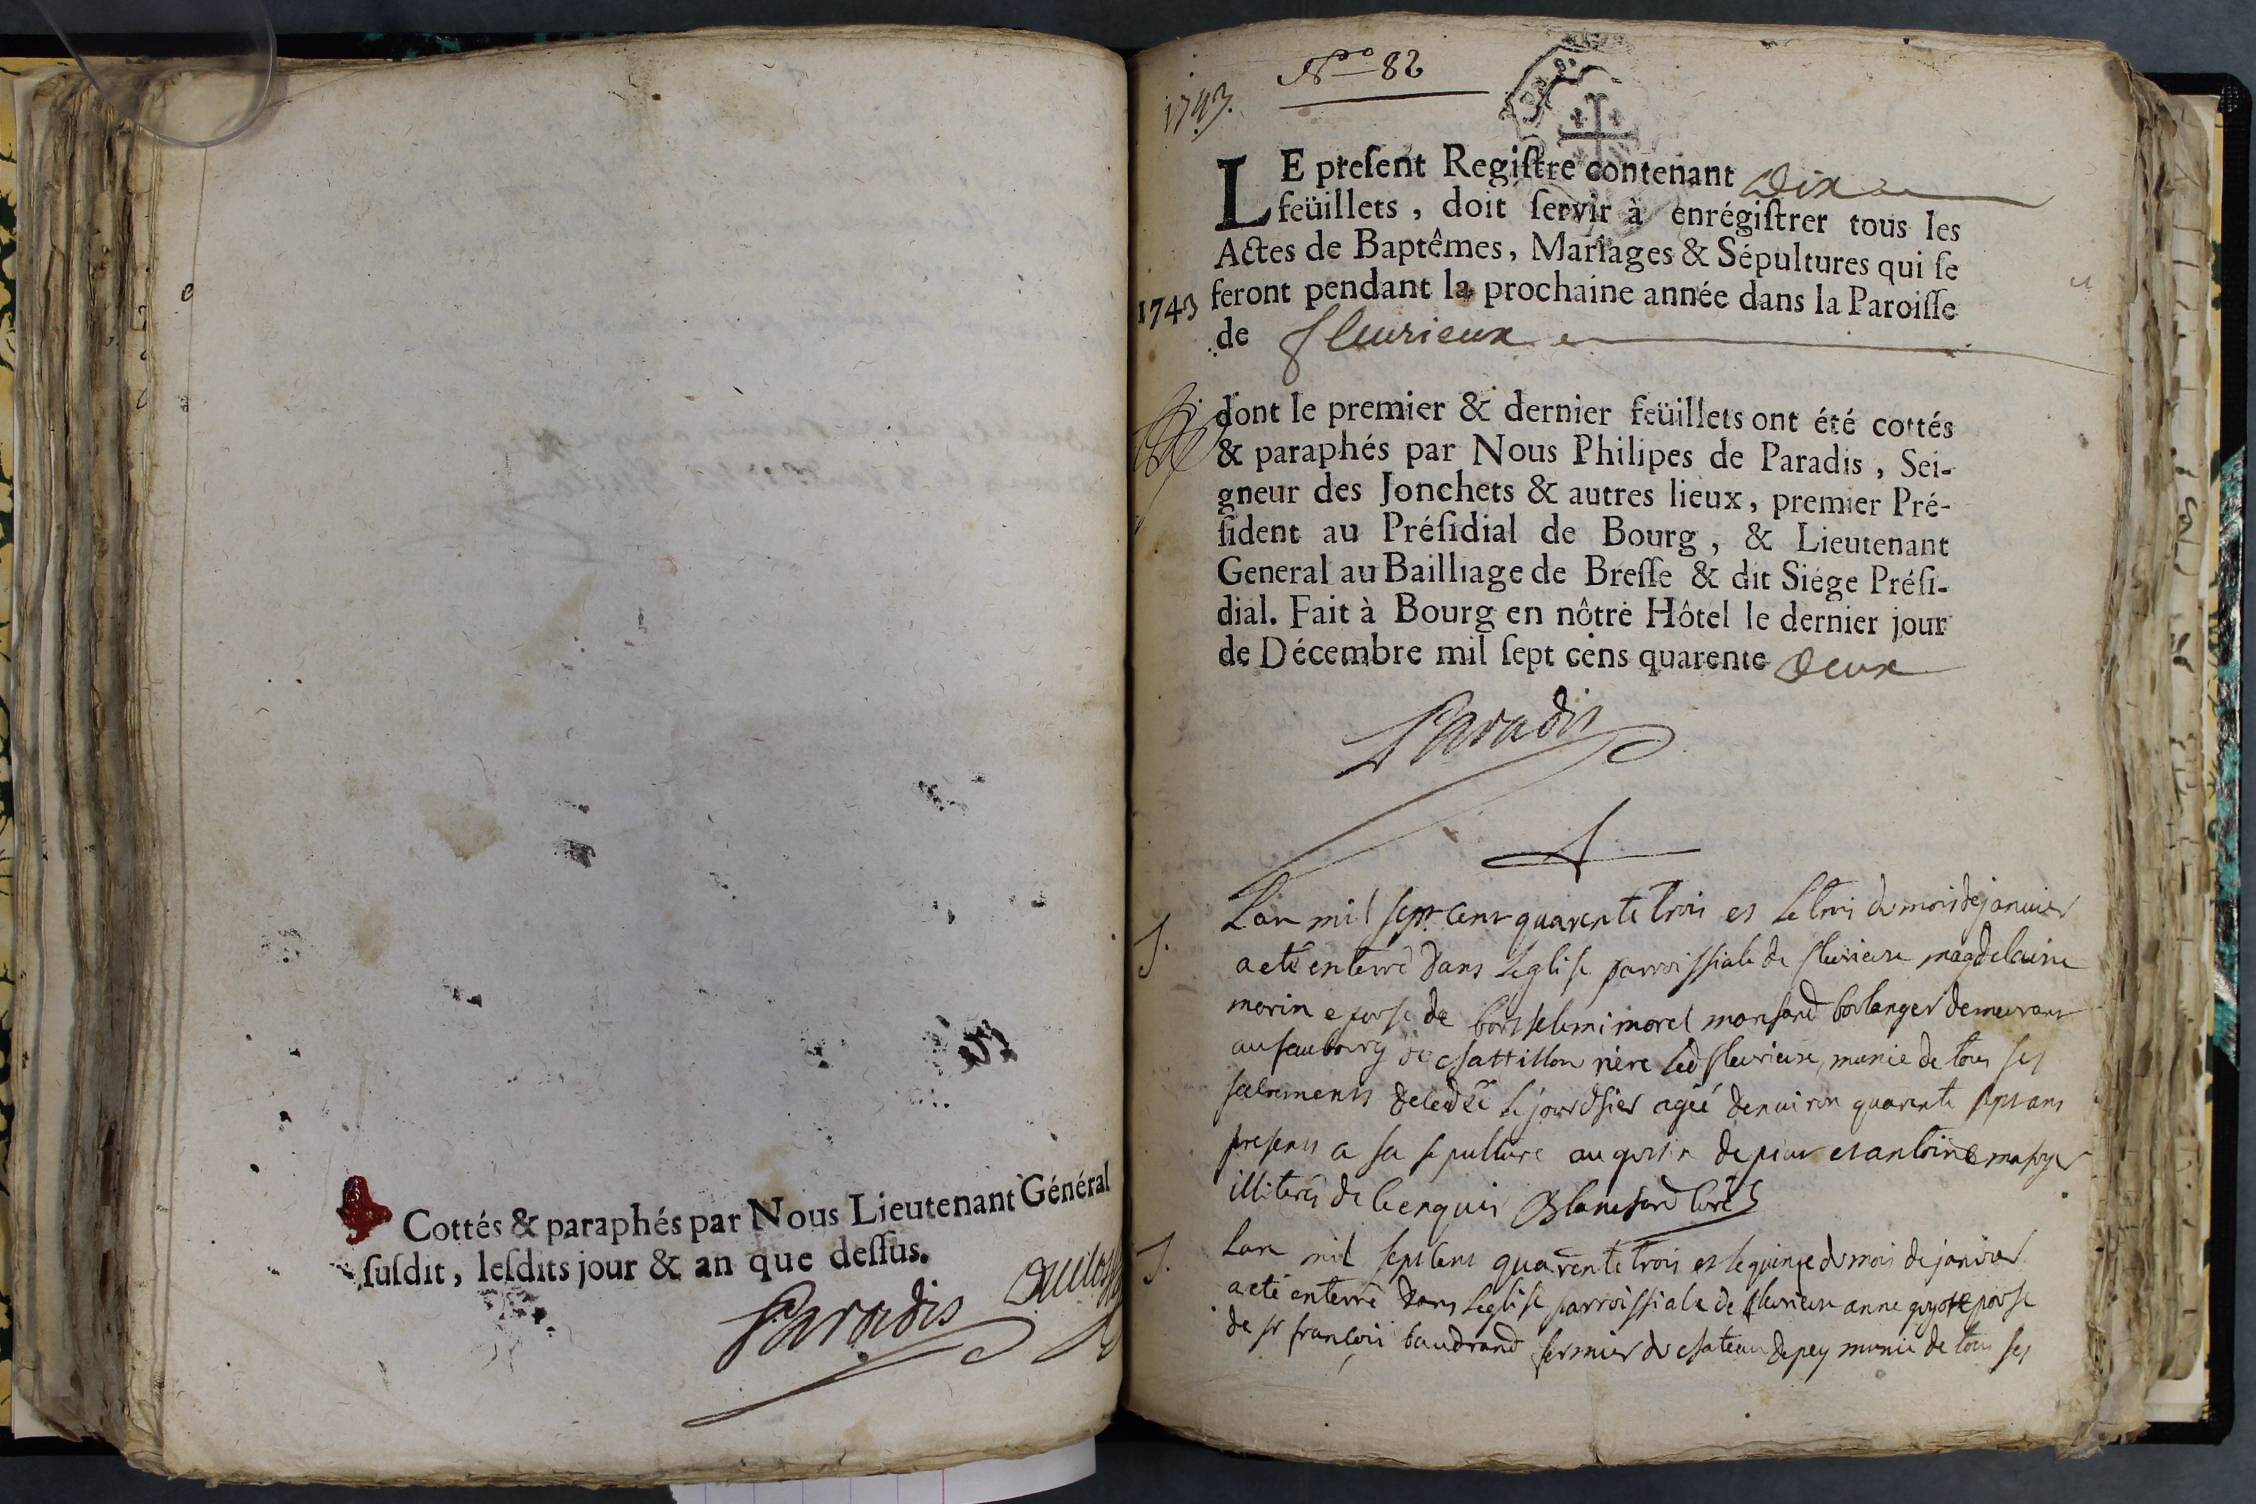 Cottés & paraphés par Nous Lieutenant Général
susdit, lesdits jour & an que dessus.
Paradis
Nº 82
1743.
LE present Registre contenant dix
feüillets, doit servir à enrégistrer tous les
Actes de Baptêmes, Mariages & Sépultures qui se
1743 feront pendant la prochaine année dans la Paroisse
de fleurieux
dont le premier & dernier feüillets ont été cottés
& paraphés par Nous Philipes de Paradis, Sei-
gneur des Jonchets & autres lieux, premier Pré-
sident au Présidial de Bourg, & Lieutenant
General au Bailliage de Bresse & dit Siége Prési-
dial. Fait à Bourg en nôtre Hôtel le dernier jour
de Décembre mil sept cens quarente deux
Paradis
S. Lan mil sept cent quarente trois et le trois du mois de janvier
a eté enterré dans leglise parroissiale de fleurieux magdelaine
morin epouse de barthelemi morel marchand boulanger demeurant
au faubourg de chattillon riere led fleurieux, munie de tous ses
sacrements decedée le jour dhier ageé denviron quarente sept ans
presents a sa sepulture et antoine
illiterés de ce enquis Blanchard curé
S. Lan mil sept cent quarente trois et le quinze du mois de janvier
a eté enterré dans leglise parroissiale de fleurieux anne guyot epouse
de sr françois baudrand fermier du chateau de pey munie de tous ses